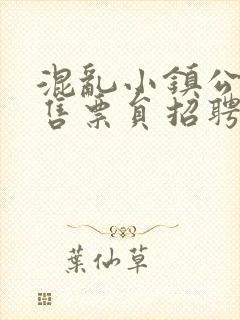 混亂小鎮公
售票員招聘
葉仙草